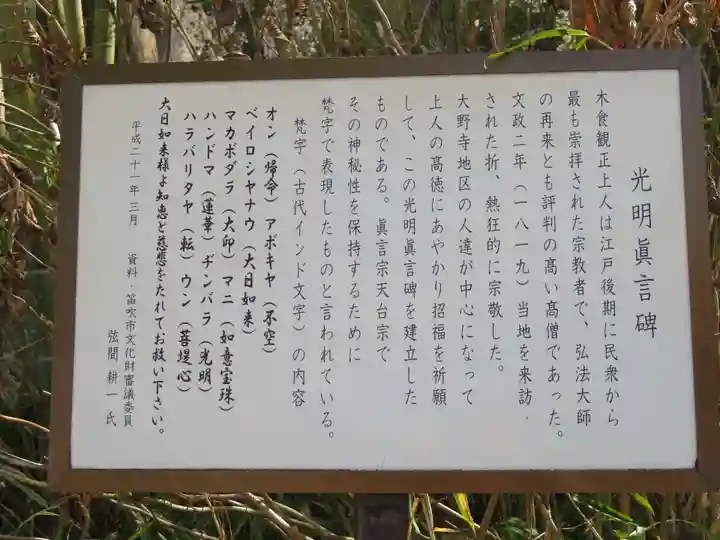 光明眞言碑
木食観正上人は江戸後期に民衆から
最も崇拝された宗教者で、弘法大師
の再来とも評判の高い高僧であった。
文政二年（一八一九）当地を来訪．
された折、熱狂的に宗敬した。
大野寺地区の人達が中心になって
上人の高徳にあやかり招福を祈願
して、この光明眞言碑を建立した
ものである。眞言宗天台宗で
その神秘性を保持するために
梵字で表現したものと言われている。
梵字（古代インド文字）の内容
オン（帰命）アボキヤ（不空）
ベイロシヤナウ（大日如来）
マカボダラ（大印）マニ（如意宝珠）
ハンドマ（蓮華）ヂンバラ（光明）
ハラバリタヤ（転）ウン（菩堤心）
大日如来様よ知恵と慈悲をたれてお救い下さい。
平成二十一年三月　資料・笛吹市文化財審議委員
弦間耕一氏